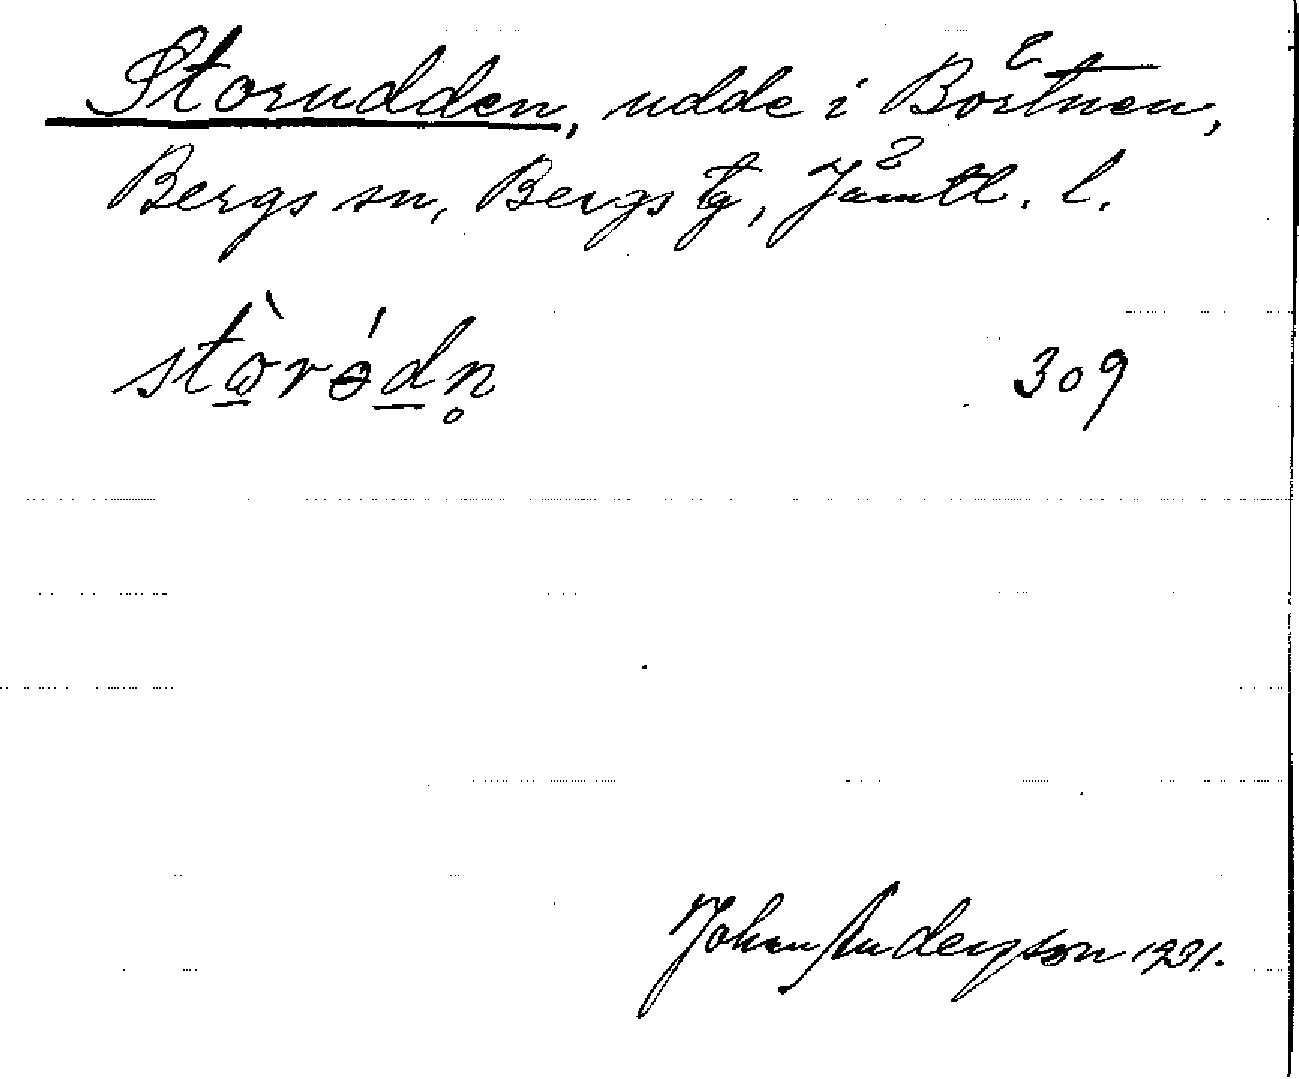 Storudden, udde i Börtnen,
Bergs sn, Bergs tg, Jämtl. l.
stòrɵ́dn̥ 309
Johan Anderson 1931.